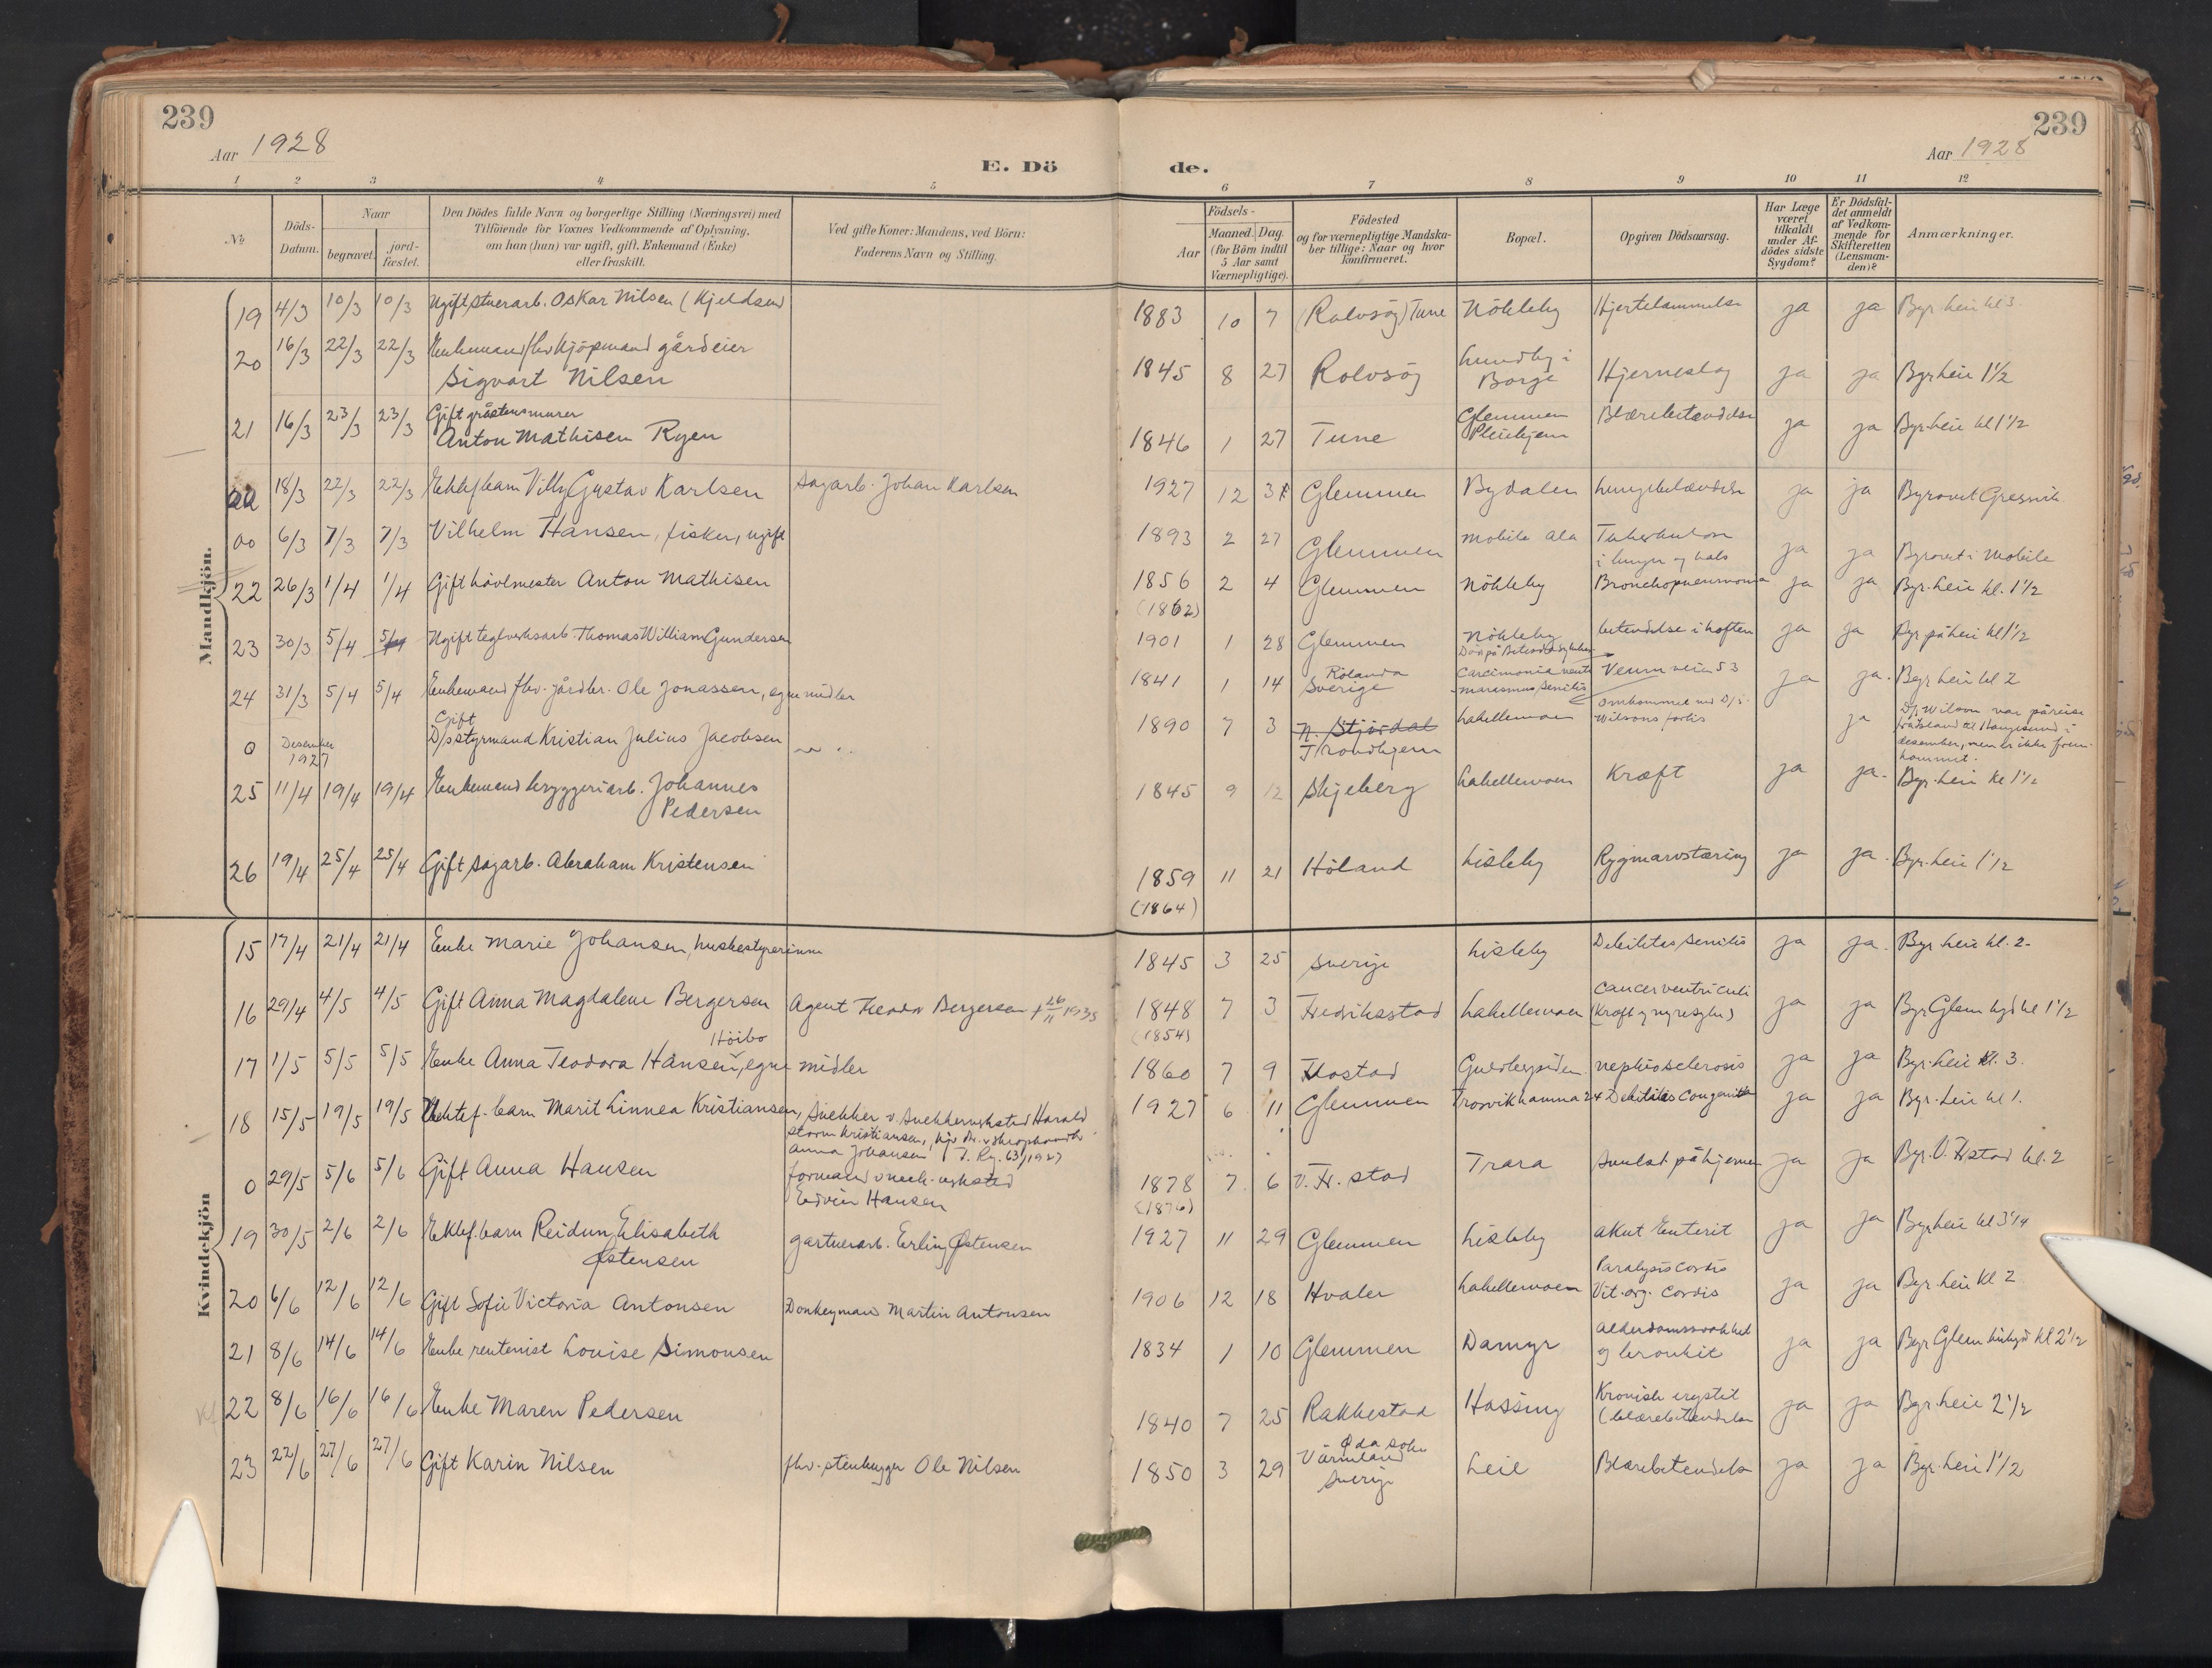 239
239
Aar 1928
Aar 1928
E. Dö
de.
1 2 3 4 5 6 7 8 9 10 11 12
No
Döds-Datum.
Naar
begravet.
jord-fæstet.
Den Dödes fulde Navn og borgerlige Stilling (Næringsvei) med
Tilföiende for Voxnes Vedkommende af Oplysning,
om han (hun) var ugift, gift, Enkemand (Enke)
eller fraskilt.
Ved gifte Koner: Mandens, ved Börn:
Faderens Navn og Stilling.
Födsels-
Aar
Maaned. Dag.
(for Börn indtil
5 Aar samt
Værnepligtige).
Födested
og for værnepligtige Mandska-
ber tillige: Naar og hvor
konfirmeret.
Bopæl.
Opgiven Dödsaarsag.
Har Læge
været
tilkaldt
under Af-
dödes sidste
Sygdom?
Er Dödsfal-
det anmeldt
af Vedkom-
mende for
Skifteretten
(Lensman-
den)?
Anmærkninger.
Mandkjön.
19 4/3 10/3 10/3 Ugift stuerarb. Oskar Nilsen (Kjeldsen) 1883 10 7 (Rolvsöy) Tune Nökleby Hjertelammelse ja ja Byr. Leie kl 3.
20 16/3 22/3 22/3 Enkemand fhv kjöpmand gårdeier
Sigvart Nilsen 1845 8 27 Rolvsöy Lundby i
Borge Hjerneslag ja ja Byr Leie 1 1/2
21 16/3 23/3 23/3 Gift gråstensmurer
Anton Mathisen Ryen 1846 1 27 Tune Glemmen
Pleiehjem Blærebetændelse ja ja Byr. Leie kl 1 1/2
18/3 22/3 22/3 Ektef barn Villy Gustav Karlsen Sagarb. Johan Karlsen 1927 12 Glemmen Bydalen Lungebetændelse ja ja Byravet Gressvik
00 6/3 7/3 7/3 Vilhelm Hansen, fisker, ugift 1893 2 27 Glemmen Mobile Ala Tuberkulose
i lunger og hals ja ja Byravet i Mobile
22 26/3 1/4 1/4 Gift hövlmester Anton Mathisen 1856 2 4 Glemmen Nökleby Bronchopneumonia ja ja Byr. Leie kl. 1 1/2
(1862)
23 30/3 5/4 5/4 Ugift teglverksarb. Thomas William Gundersen 1901 1 28 Glemmen Nökleby betendelse i hoften ja ja Byr på Leie kl 1 1/2
24 31/3 5/4 5/4 Enkemand fhv. gårdbr. Ole Jonassen, egne midler 1841 1 14 Rölanda
Sverige Carcimonia ventr
marasmus senilis Veumveien 53 ja ja. Byr Leie kl 2
0 Desember
1927 Gift
D/s styrmand Kristian Julius Jacobsen 1890 7 3 N. Stjördal
Trondhjem Labellemoen omkommet med D/s
Wilsons forlis ja D/s Wilson var på reise
fra Island til Haugesund i
desember, men er ikke frem-
kommet.
25 11/4 19/4 19/4 Enkemand bryggeriarb. Johannes
Pedersen 1845 9 12 Skjeberg Labellemoen Kræft ja ja. Byr. Leie kl 1 1/2
26 19/4 25/4 25/4 Gift sagarb. Abraham Kristensen 1859 11 21 Höland Lisleby Rygmarvstæring ja ja. Byr. Leie 1 1/2
(1864)
Kvindekjön
15 17/4 21/4 21/4 Enke Marie Johansen, husbestyrerinne 1845 3 25 Sverige Lisleby Debilitas senilis ja ja. Byr. Leie kl. 2.
16 29/4 4/5 4/5 Gift Anna Magdalene Bergersen Agent Teodor Bergersen † 26/11 1935 1848 7 3 Fredriksstad Labellemoen Cancer ventriculi
(Kræft og nyresyke) ja ja Byr Glem kgd kl 1 1/2
(1854)
17 1/5 5/5 5/5 Enke Anna Teodora Hansen, egne midler 1860 7 9 Guldbergsiden nephrosclerosis ja ja Byr. Leie kl. 3.
Höibo
18 15/5 19/5 19/5 Uektef. barn Marit Linnea Kristiansen, Snekker v. Snekkerverksted Harald
Storm Kristiansen,
Anna Johansen F. Rg. 63/1927 1927 6 11 Glemmen Trosvikhamna 24 Debilitas congenita ja ja Byr. Leie kl 1.
0 29/5 5/6 5/6 Gift Anna Hansen formand v mek. verksted
Edvin Hansen 1878 7 6 V. Fr. stad Trara Svulst på hjernen ja ja Byr. V. Frstad kl. 2
(1876)
19 30/5 2/6 2/6 Ektef. barn Reidun Elisabeth
Østensen gartnerarb. Erling Østensen 1927 11 29 Glemmen Lisleby akut Enterit ja ja Byr Leie kl 3 1/4
20 6/6 12/6 12/6 Gift Sofie Victoria Antonsen Donkeymand Martin Antonsen 1906 12 18 Hvaler Labellemoen Paralysis cordis
Vit. org. cordis ja ja Byr. Leie kl 2
21 8/6 14/6 14/6 Enke rentenist Louise Simonsen 1834 1 10 Glemmen Damyr Alderdomssvakhet
og bronkit ja ja Byr Glem kirkegd kl 2 1/2
22 8/6 16/6 16/6 Enke Maren Pedersen 1840 7 25 Rakkestad Hassing Kronisk cystit
(blærebetendelse ja ja Byr. Leie 2 1/2
23 22/6 27/6 27/6 Gift Karin Nilsen fhv. stenhugger Ole Nilsen 1850 3 29 Värmland
Sverige Leie Blærebetendelse ja ja Byr. Leie 1 1/2